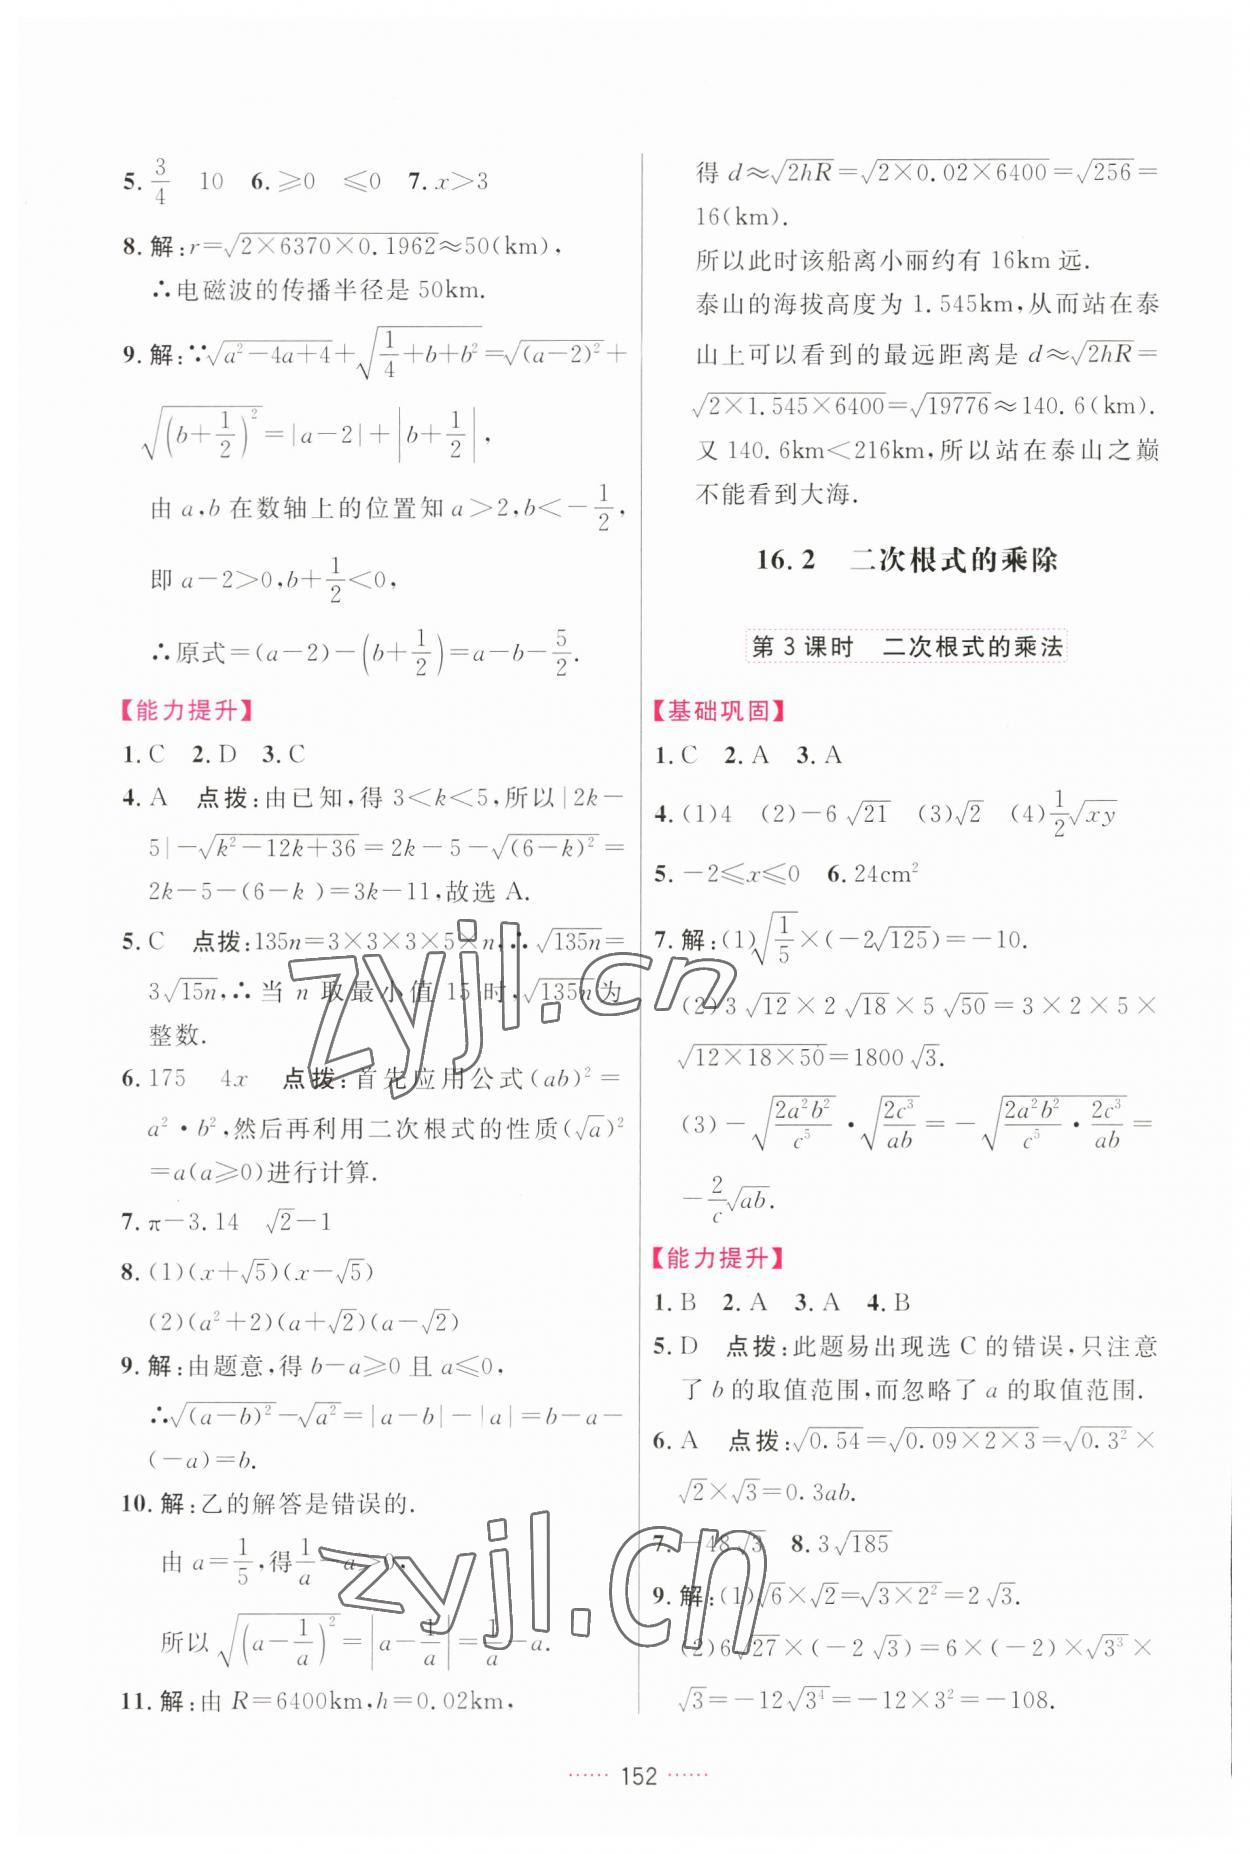 5. 3/4　10　6. ≥0　≤0　7. x>3
8. 解:r=√(2×6370×0.1962)≈50(km),
∴电磁波的传播半径是 50km.
9. 解:∵√(a²-4a+4)+√(1/4+b+b²)=√((a-2)²)+
√((b+1/2)²)=|a-2|+|b+1/2|,
由 a,b 在数轴上的位置知 a>2,b<-1/2,
即 a-2>0,b+1/2<0,
∴原式=(a-2)-(b+1/2)=a-b-5/2.
【能力提升】
1. C　2. D　3. C
4. A　点拨:由已知,得 3<k<5,所以|2k-
5|-√(k²-12k+36)=2k-5-√((6-k)²)=
2k-5-(6-k )=3k-11,故选 A.
5. C　点拨:135n=3×3×3×5×n,∴√(135n)=
3√(15n),∴当 n 取最小值 15 时,√(135n)为
整数.
6. 175　4x　点拨:首先应用公式(ab)²=
a²·b²,然后再利用二次根式的性质(√a)²
=a(a≥0)进行计算.
7. π-3.14　√2-1
8. (1)(x+√5)(x-√5)
(2)(a²+2)(a+√2)(a-√2)
9. 解:由题意,得 b-a≥0 且 a≤0,
∴√((a-b)²)-√(a²)=|a-b|-|a|=b-a-
(-a)=b.
10. 解:乙的解答是错误的.
由 a=1/5,得1/a-a>0,
所以 √((a-1/a)²)=|a-1/a|=1/a-a.
11. 解:由 R=6400km,h=0.02km,
得 d≈√(2hR)=√(2×0.02×6400)=√256=
16(km).
所以此时该船离小丽约有 16km 远.
泰山的海拔高度为 1.545km,从而站在泰
山上可以看到的最远距离是 d≈√(2hR)=
√(2×1.545×6400)=√19776≈140.6(km).
又 140.6km<216km,所以站在泰山之巅
不能看到大海.
16.2　二次根式的乘除
第 3 课时　二次根式的乘法
【基础巩固】
1. C　2. A　3. A
4. (1)4　(2)-6√21　(3)√2　(4)1/2√(xy)
5. -2≤x≤0　6. 24cm²
7. 解:(1)√(1/5)×(-2√125)=-10.
(2)3√12×2√18×5√50=3×2×5×
√(12×18×50)=1800√3.
(3)-√(2a²b²/c⁵)·√(2c³/ab)=-√(2a²b²/c⁵·2c³/ab)=
-2/c√(ab).
【能力提升】
1. B　2. A　3. A　4. B
5. D　点拨:此题易出现选 C 的错误,只注意
了 b 的取值范围,而忽略了 a 的取值范围.
6. A　点拨:√0.54=√(0.09×2×3)=√(0.3²)×
√2×√3=0.3ab.
7. -48√3　8. 3√185
9. 解:(1)√6×√2=√(3×2²)=2√3.
(2)6√27×(-2√3)=6×(-2)×√(3³)×
√3=-12√(3⁴)=-12×3²=-108.
······ 152 ······
zyjl.cn
zyjl.cn